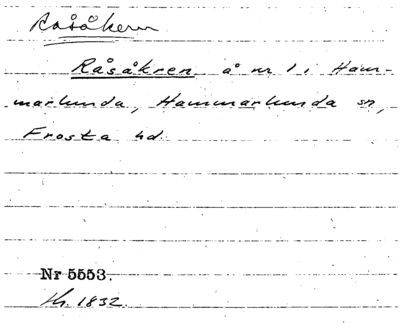 Råsåkern
Råsåkren å nr 1 i Ham-
marlunda, Hammarlunda sn,
Frosta hd.
Nr 5553.
1832.